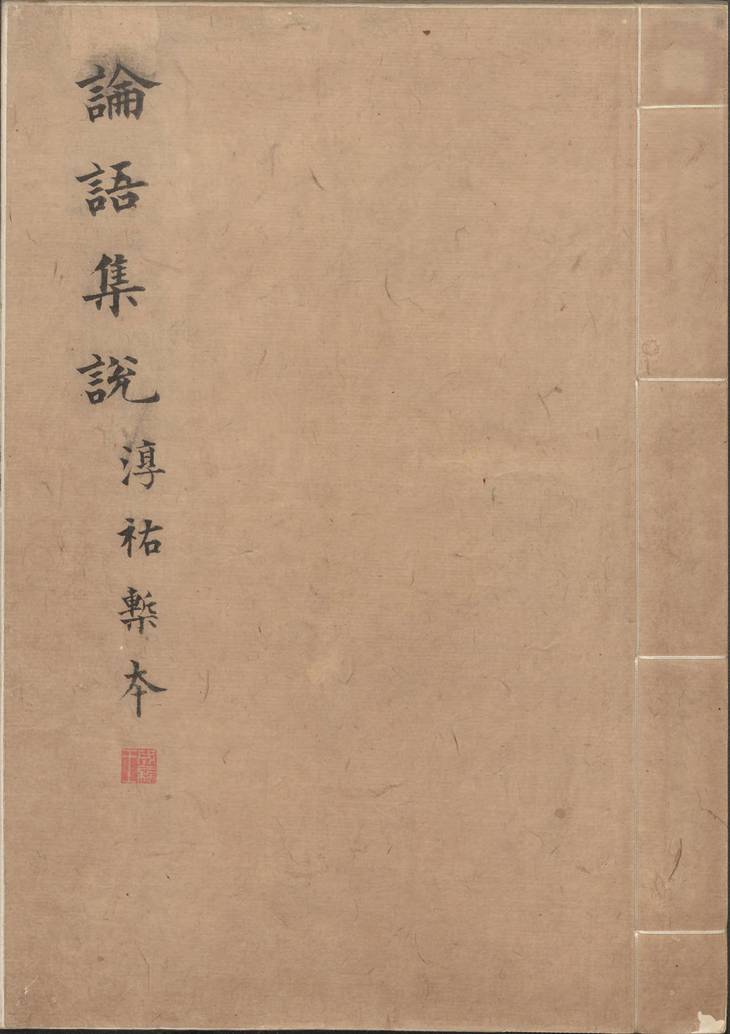 論語集說
淳祐槧本